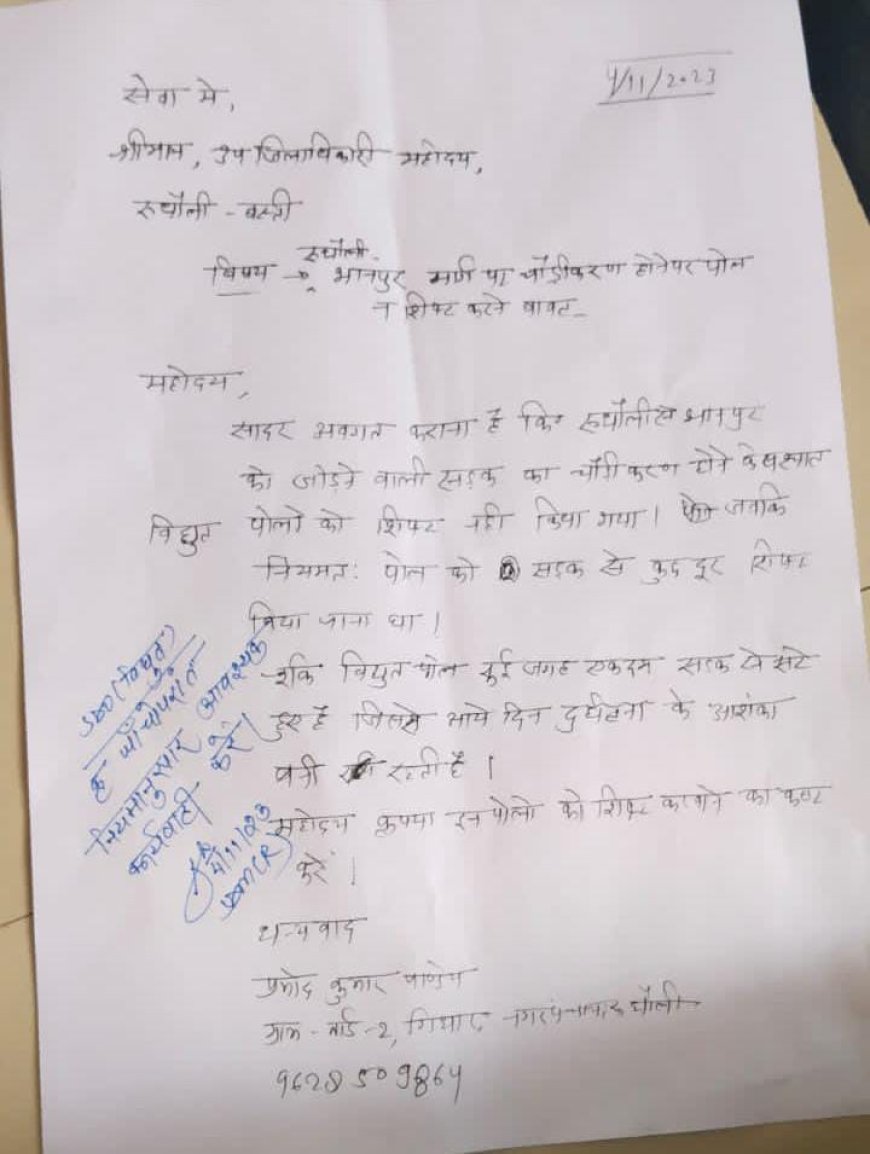 4/11/2023
सेवा मे,
श्रीमान, उप जिलाधिकारी महोदय,
रुधौली - बस्ती
विषय → रुधौली भानपुर मार्ग पर चौड़ीकरण होनेपर पोल
न शिफ्ट करने बावत -
महोदय,
सादर अवगत कराना है कि रुधौली से भानपुर
को जोड़ने वाली सड़क का चौड़ीकरण होने के पश्चात
विद्युत पोलो को शिफ्ट नही किया गया। जबकि
नियमत: पोल को सड़क से कुछ दूर शिफ्ट
किया जाना था।
विद्युत पोल कई जगह एकदम सड़क से सटे
हुए है जिससे आये दिन दुर्घटना के आशंका
बनी रहती है।
महोदय कृपया इन पोलो को शिफ्ट करवाने का कष्ट
करें।
धन्यवाद
प्रमोद कुमार पाण्डेय
ग्राम - वार्ड - 2, नगर पंचायत रुधौली
9628509864
SDO (विद्युत)
जाँचोपरांत
नियमानुसार आवश्यक
कार्यवाही करें।
4/11/23
SDM(R)